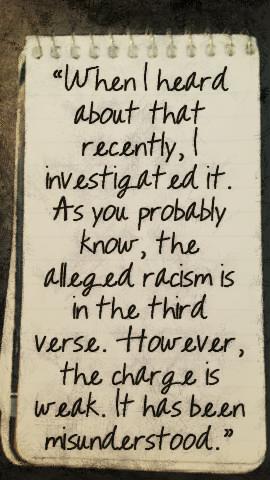 “When I heard
about that
recently, I
investigated it.
As you probably
know, the
alleged racism is
in the third
verse. However,
the charge is
weak. It has been
misunderstood.”